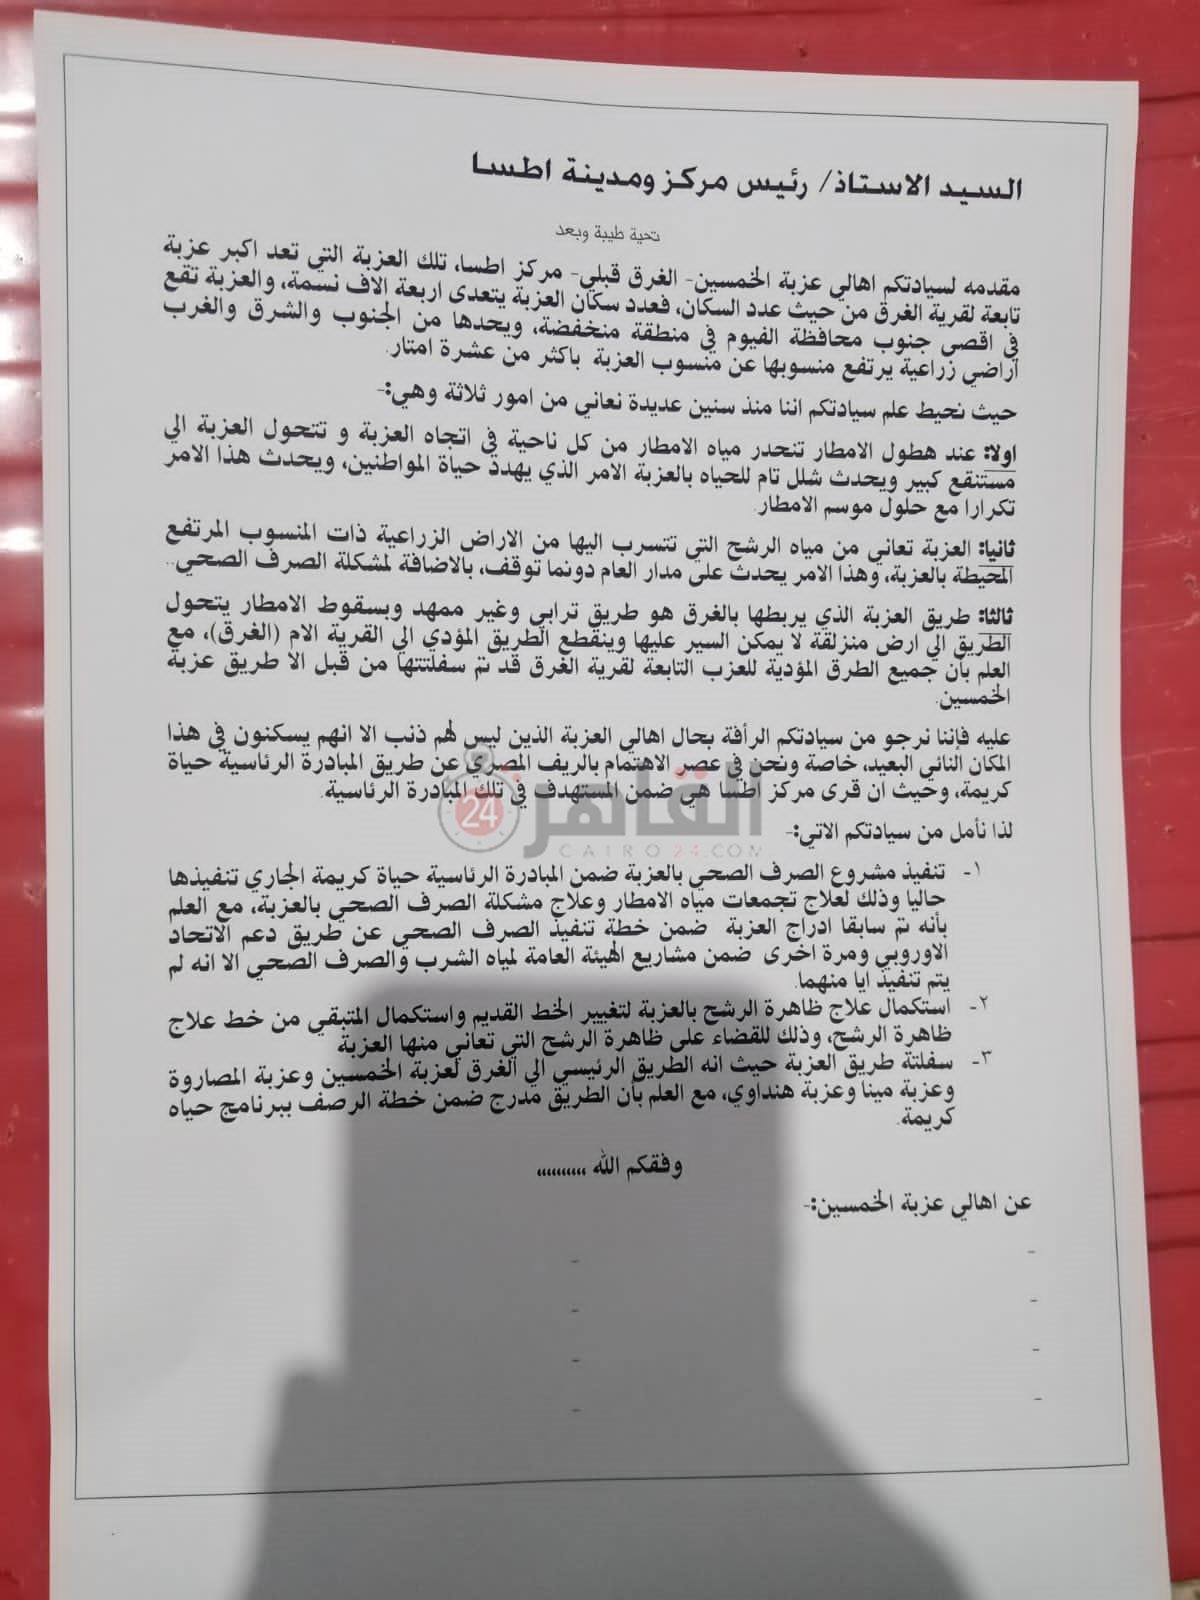 السيد الاستاذ/ رئيس مركز ومدينة اطسا
تحية طيبة وبعد
مقدمه لسيادتكم اهالي عزبة الخمسين- الغرق قبلي- مركز اطسا، تلك العزبة التي تعد اكبر عزبة
تابعة لقرية الغرق من حيث عدد السكان، فعدد سكان العزبة يتعدى اربعة الاف نسمة، والعزبة تقع
في اقصى جنوب محافظة الفيوم في منطقة منخفضة، ويحدها من الجنوب والشرق والغرب
اراضي زراعية يرتفع منسوبها عن منسوب العزبة باكثر من عشرة امتار.
حيث نحيط علم سيادتكم اننا منذ سنين عديدة نعاني من امور ثلاثة وهي:-
اولا: عند هطول الامطار تنحدر مياه الامطار من كل ناحية في اتجاه العزبة و تتحول العزبة الي
مستنقع كبير ويحدث شلل تام للحياه بالعزبة الامر الذي يهدد حياة المواطنين، ويحدث هذا الامر
تكرارا مع حلول موسم الامطار.
ثانيا: العزبة تعاني من مياه الرشح التي تتسرب اليها من الاراض الزراعية ذات المنسوب المرتفع
المحيطة بالعزبة، وهذا الامر يحدث على مدار العام دونما توقف، بالاضافة لمشكلة الصرف الصحي..
ثالثا: طريق العزبة الذي يربطها بالغرق هو طريق ترابي وغير ممهد وبسقوط الامطار يتحول
الطريق الي ارض منزلقة لا يمكن السير عليها وينقطع الطريق المؤدي الي القرية الام (الغرق)، مع
العلم بأن جميع الطرق المؤدية للعزب التابعة لقرية الغرق قد تم سفلتتها من قبل الا طريق عزبة
الخمسين.
عليه فإننا نرجو من سيادتكم الرأفة بحال اهالي العزبة الذين ليس لهم ذنب الا انهم يسكنون في هذا
المكان النائي البعيد، خاصة ونحن في عصر الاهتمام بالريف المصري عن طريق المبادرة الرئاسية حياة
كريمة، وحيث ان قرى مركز اطسا هي ضمن المستهدف في تلك المبادرة الرئاسية.
القاهرة 24
CAIRO24.COM
لذا نأمل من سيادتكم الاتي:-
١- تنفيذ مشروع الصرف الصحي بالعزبة ضمن المبادرة الرئاسية حياة كريمة الجاري تنفيذها
حاليا وذلك لعلاج تجمعات مياه الامطار وعلاج مشكلة الصرف الصحي بالعزبة، مع العلم
بأنه تم سابقا ادراج العزبة ضمن خطة تنفيذ الصرف الصحي عن طريق دعم الاتحاد
الاوروبي ومرة اخرى ضمن مشاريع الهيئة العامة لمياه الشرب والصرف الصحي الا انه لم
يتم تنفيذ ايا منهما.
٢- استكمال علاج ظاهرة الرشح بالعزبة لتغيير الخط القديم واستكمال المتبقي من خط علاج
ظاهرة الرشح، وذلك للقضاء على ظاهرة الرشح التي تعاني منها العزبة
٣- سفلتة طريق العزبة حيث انه الطريق الرئيسي الي الغرق لعزبة الخمسين وعزبة المصاروة
وعزبة مينا وعزبة هنداوي، مع العلم بأن الطريق مدرج ضمن خطة الرصف ببرنامج حياه
كريمة.
وفقكم الله ،،،،،،،،،،
عن اهالي عزبة الخمسين:-
- -
- -
- -
- -